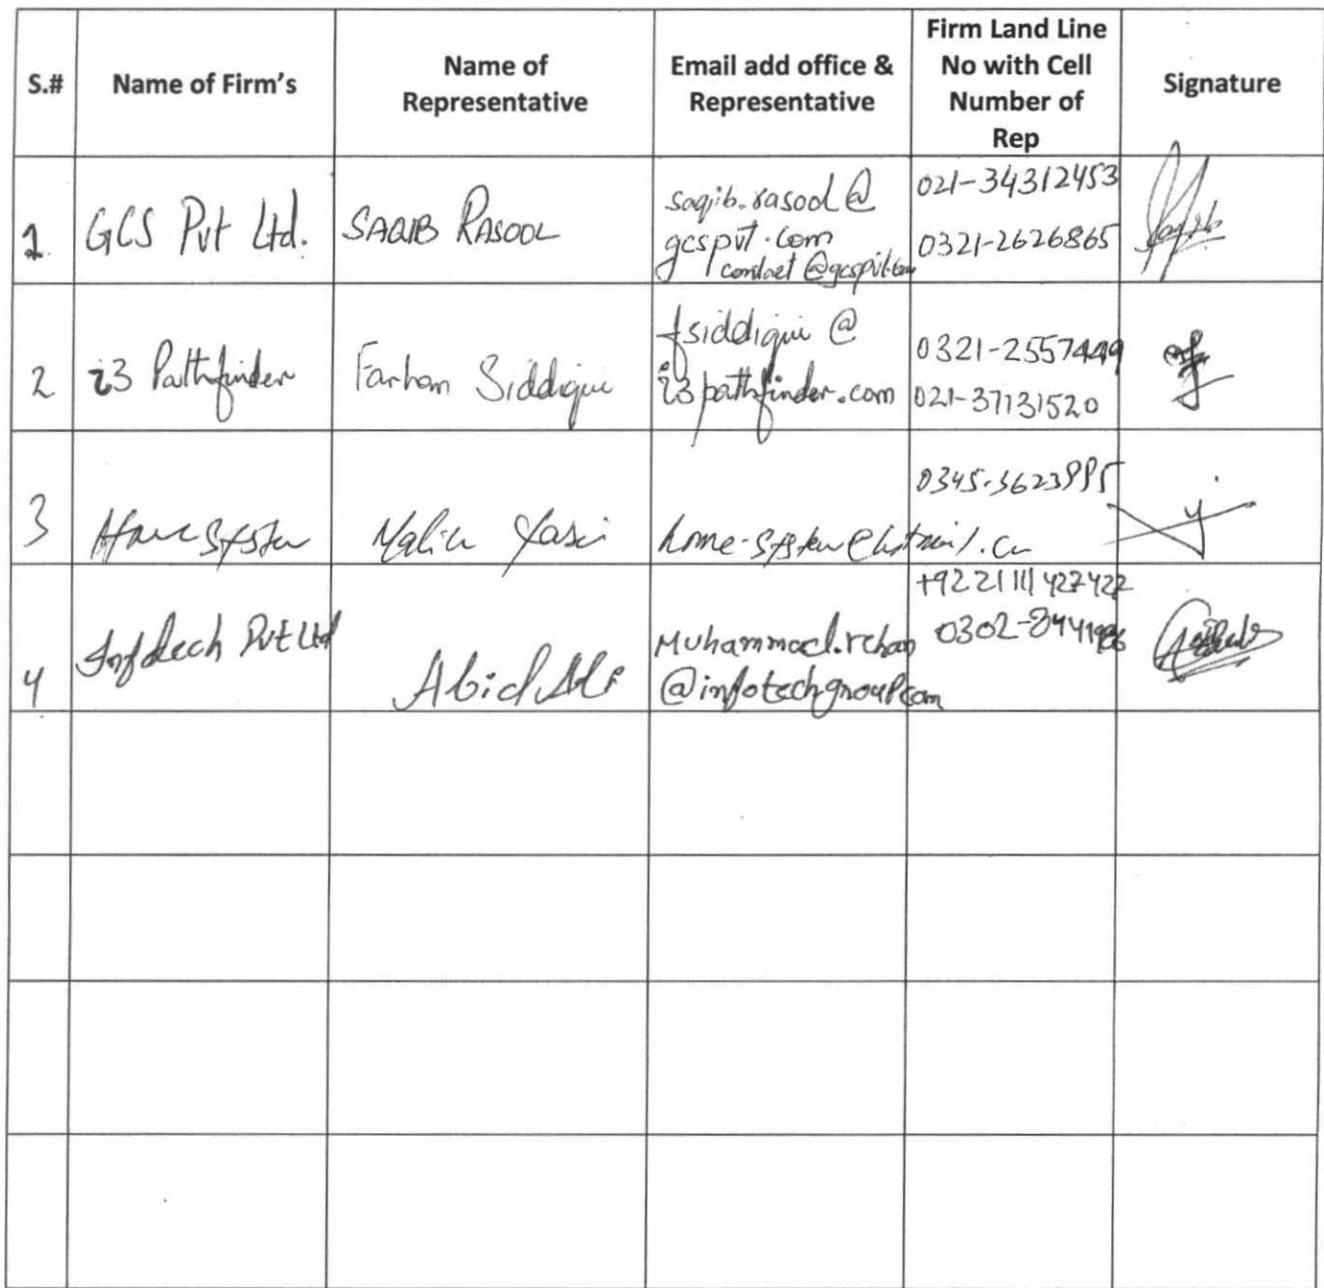 S.#
Name of Firm's
Name of
Representative
Email add office &
Representative
Firm Land Line
No with Cell
Number of
Rep
Signature
1.
GCS Pvt Ltd.
SAQIB RASOOL
saqib.rasool@
gcspvt.com
contact@gcspvt.com
021-34312453
0321-2626865
2
i3 Pathfinder
Farhan Siddiqui
fsiddiqui@
i3pathfinder.com
0321-2557449
021-37131520
3
Home System
Malik Yasir
home-system@hotmail.com
4
Infotech Pvt Ltd
Abid Ali
Muhammad.rehan
@infotechgroup.com
+92 21 111 427 422